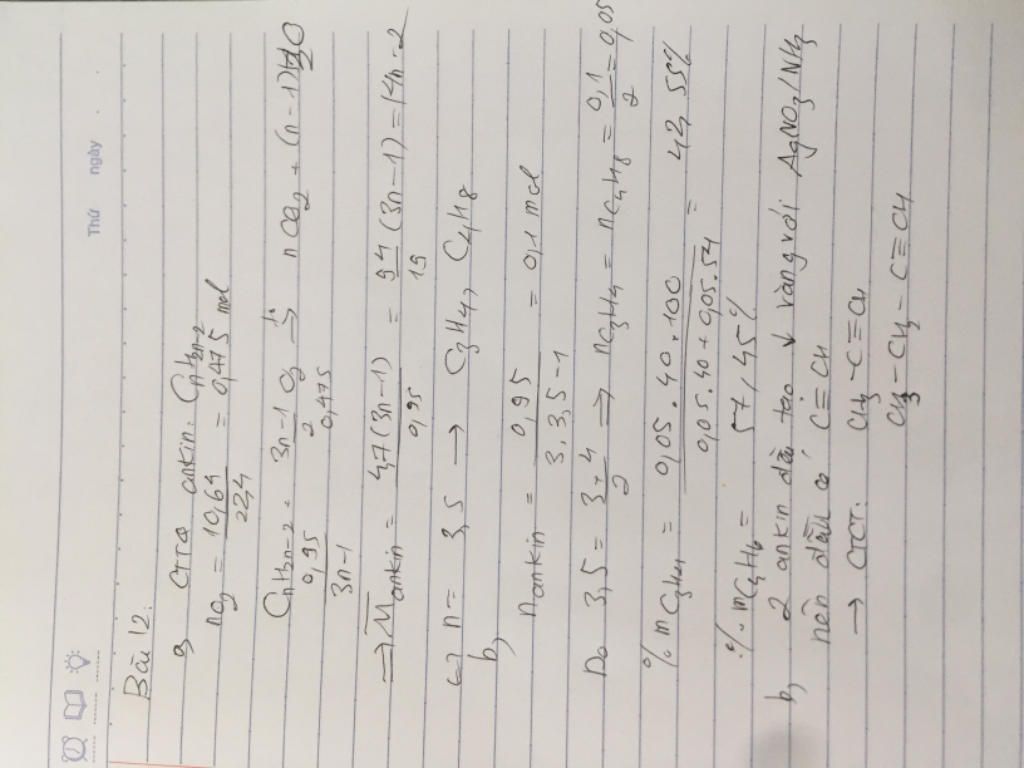 Thứ ngày
Bài 12:
a, CTTQ ankin: CnH2n-2
nO2 = 10,64/22,4 = 0,475 mol
CnH2n-2 + (3n-1)/2 O2 →t° nCO2 + (n-1)H2O
0,95/(3n-1) 0,475
=> M̅ankin = 4,7(3n-1)/0,95 = 94/19 (3n-1) = 14n-2
<=> n = 3,5 → C3H4, C4H8
b,
nankin = 0,95/(3.3,5-1) = 0,1 mol
Do 3,5 = (3+4)/2 => nC3H4 = nC4H8 = 0,1/2 = 0,05
% mC3H4 = 0,05.40.100/(0,05.40+0,05.54) = 42,55%
% mC4H6 = 57,45%
b, 2 ankin đều tạo ↓ vàng với AgNO3/NH3
nên đều có C≡CH
→ CTCT: CH3-C≡CH
CH3-CH2-C≡CH